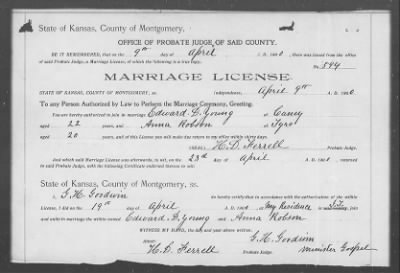 State of Kansas, County of Montgomery, ss.
OFFICE OF PROBATE JUDGE OF SAID COUNTY.
BE IT REMEMBERED, that on the 9th day of April A. D. 1900, there was issued from the office
of said Probate Judge, a Marriage License, of which the following is a true copy.
No. 594
MARRIAGE LICENSE.
STATE OF KANSAS, COUNTY OF MONTGOMERY, ss. Independence, April 9th A. D. 1900
To any Person Authorized by Law to Perform the Marriage Ceremony, Greeting.
You are hereby authorized to join in marriage Edward G. Young of Caney
aged 22 and Anna Robson of Tyro
aged 20 and of this License you will make due return to my office within thirty days.
(SEAL) H. D. Ferrell Probate Judge.
And which said Marriage License was afterwards, to wit, on the 23rd day of April A. D. 1900, returned
to said Probate Judge, with the following Certificate endorsed thereon to wit:
State of Kansas, County of Montgomery, ss.
I, G. H. Goodwin do hereby certify, that in accordance with the authorization of the within
License, I did on the 19th day of April A. D. 1900, at My Residence in said County join
and unite in marriage the above named Edward G. Young and Anna Robson
WITNESS MY HAND, the day and year above written.
G. H. Goodwin
H. D. Ferrell Probate Judge. Minister Gospel